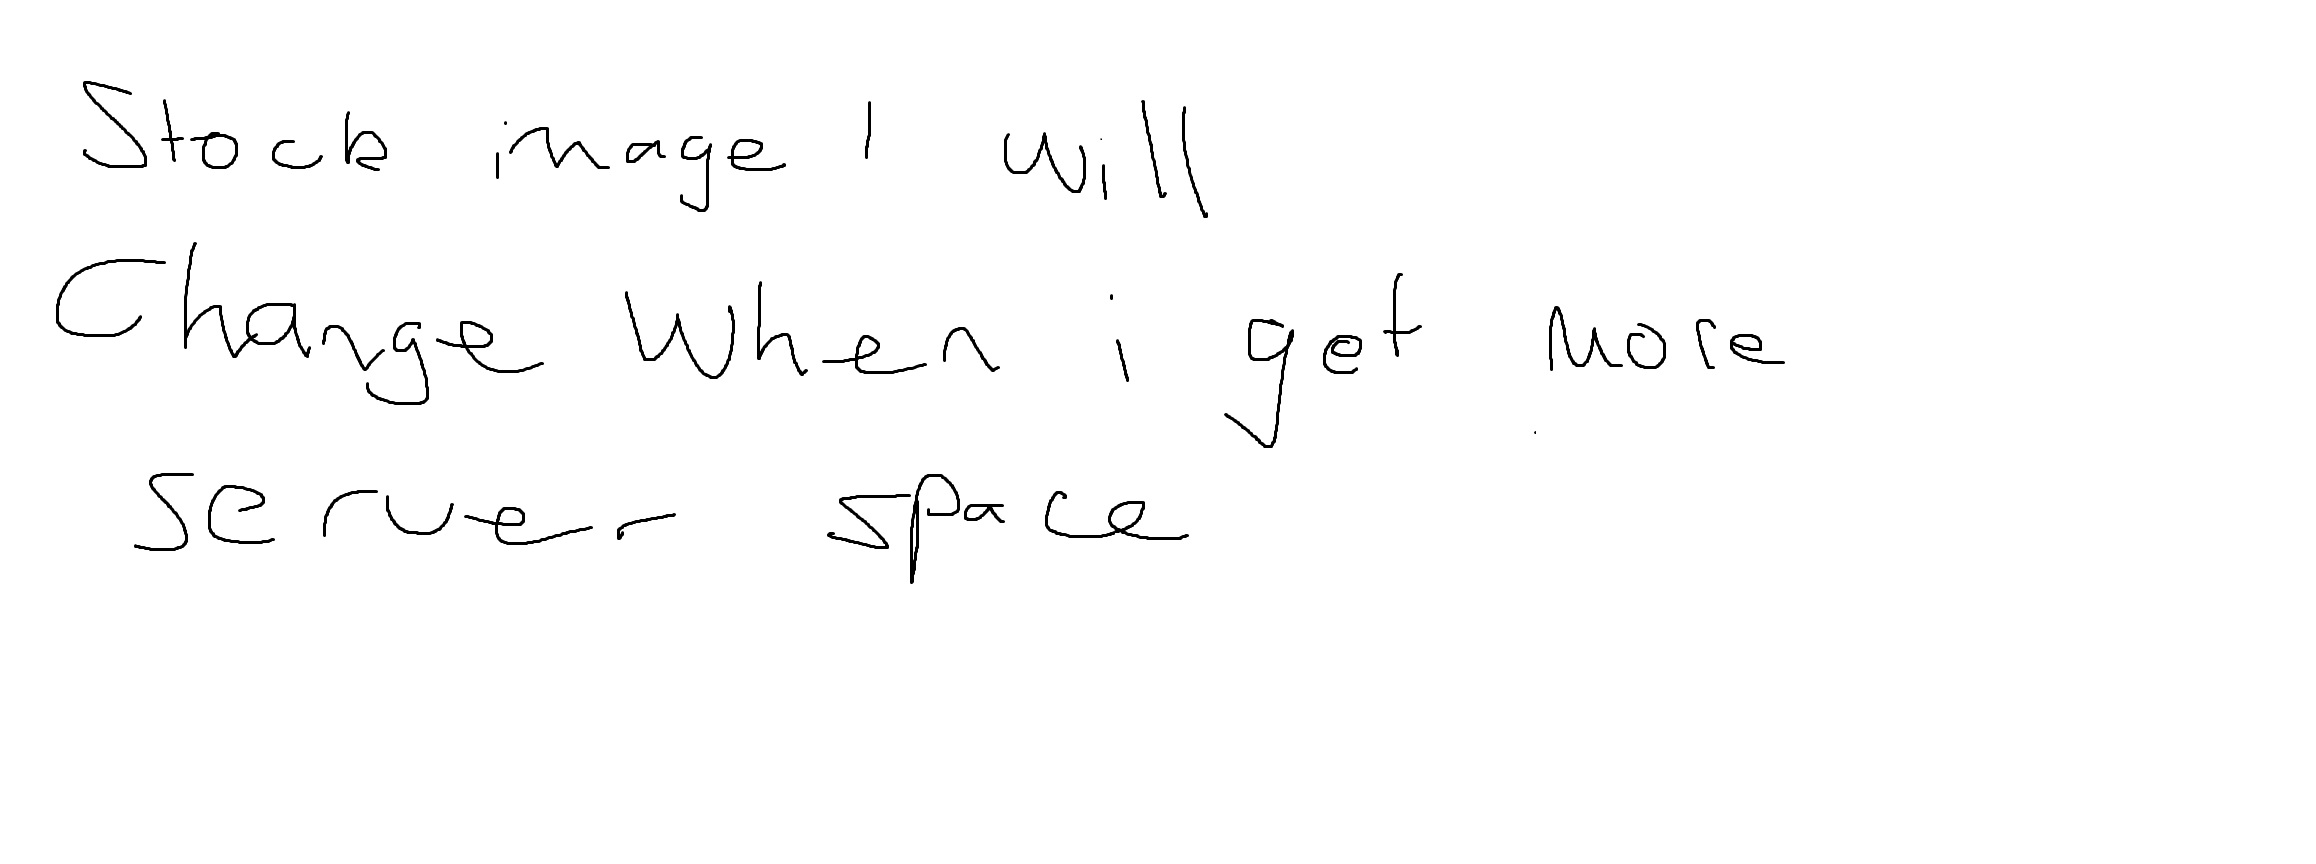 Stock image I will
Change When i get More
server space